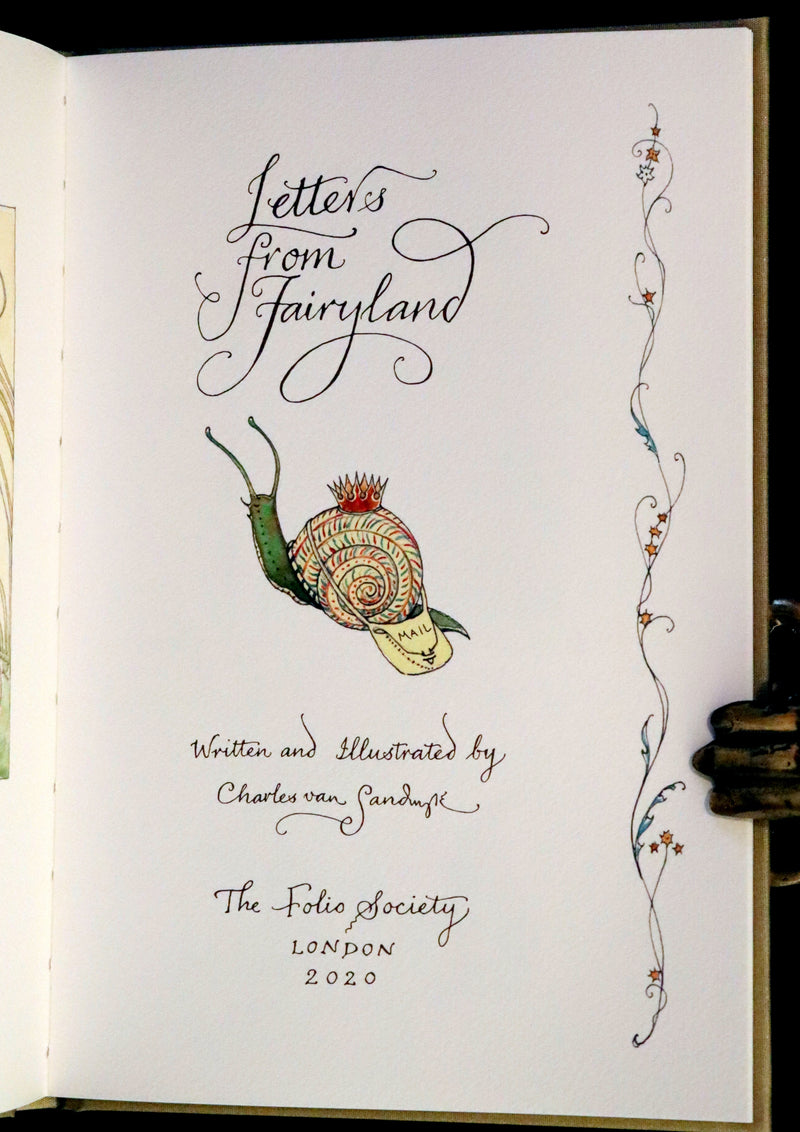 Letters
from
Fairyland
MAIL
Written and Illustrated by
Charles van Sandwyk
The Folio Society
LONDON
2020